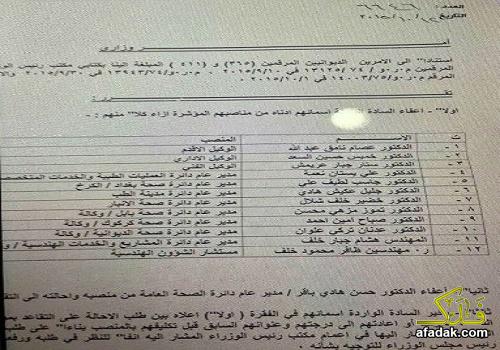 العدد: ٦٦٤٦
التاريخ ٢٠١٥/١٠/١٢
أمر وزاري
استنادا" الى الامرين الديوانيين المرقمين (٣٦٥) و (٤١١) المبلغة الينا بكتابي مكتب رئيس
المرقمين م.ر.و / ٧٤ / ١٣١٢٥ في ٢٠١٥/٩/١٠ و م.ر.و/١٣٩٤٣/٧٤ في ٢٠١٥/٩/٣٠
المرقم م.ر.و/١٤٠٠٣/٧٥ في ٢٠١٥/١٠/١
تقرر
اولا" - اعفاء السادة اسمائهم ادناه من مناصبهم المؤشرة ازاء كلا" منهم :-
ت الاسم المنصب
١- الدكتور عصام نامق عبد الله الوكيل الاقدم
٢- الدكتور خميس حسين السعد الوكيل الاداري
٣- الدكتور ستار جبار الوكيل الفني
٤- الدكتور علي بستان نعمة مدير عام دائرة العمليات الطبية والخدمات
٥- الدكتور جاسب لطيف علي مدير عام دائرة صحة بغداد / الكرخ
٦- الدكتور جليل عكيش هادي مدير عام دائرة مدينة الطب
٧- الدكتور خضير خلف شلال مدير عام دائرة صحة الانبار
٨- الدكتور تموز مزهي محسن مدير عام دائرة صحة بابل / وكالة
٩- الدكتور صباح امين احمد مدير عام دائرة صحة كركوك / وكالة
١٠- الدكتور عدنان تركي علوان مدير عام دائرة صحة الديوانية / وكالة
١١- المهندس هشام جبار خلف مدير عام دائرة المشاريع والخدمات الهندسية
١٢- ر. مهندسين ظافر محمود خلف مستشار الشؤون الهندسية
ثانيا" - اعفاء الدكتور حسن هادي باقر / مدير عام دائرة الصحة العامة من منصبه واحالته الى
السادة الواردة اسمائهم في الفقرة ( اولا") اعلاه بين طلب الاحالة على التقاعد
او اعادتهم الى درجتهم وعنوانهم السابق قبل تكليفهم بالمنصب بناءا" على
اليها في مكتب رئيس الوزراء المشار اليه انفا" للنظر في طلبه
مجلس الوزراء للتوجيه بشأنه .
afadak.com